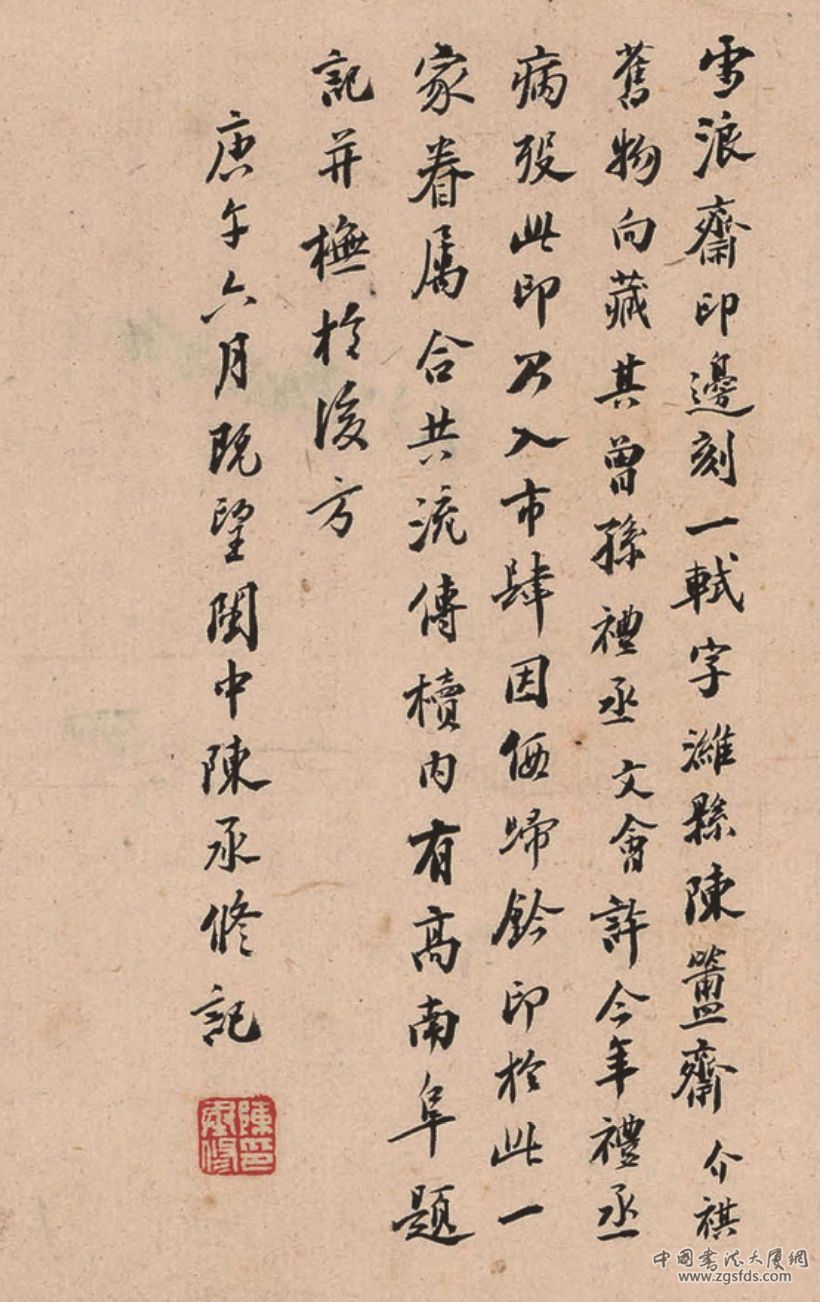 雪浪齋印邊刻一軾字濰縣陳簠齋介祺
舊物向藏其曾孫禮丞文會許今年禮丞
病歿此印乃入市肆因価歸鈐印於此一
家眷属合共流傳櫝内有高南阜題
記并橅於後方
庚午六月既望閩中陳承修記
陳承修印
中国书法大厦網
www.zgsfds.com